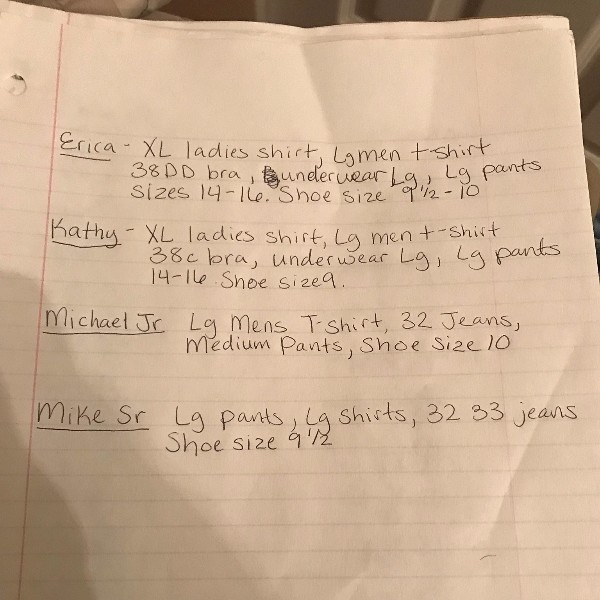 Erica - XL ladies shirt, Lg men t-shirt
38DD bra, underwear Lg, Lg pants
sizes 14-16. Shoe size 9 1/2 - 10
Kathy - XL ladies shirt, Lg men t-shirt
38c bra, underwear Lg, Lg pants
14-16 Shoe size 9.
Michael Jr Lg Mens T-Shirt, 32 Jeans,
Medium Pants, Shoe Size 10
Mike Sr Lg pants, Lg Shirts, 32 33 jeans
Shoe size 9 1/2